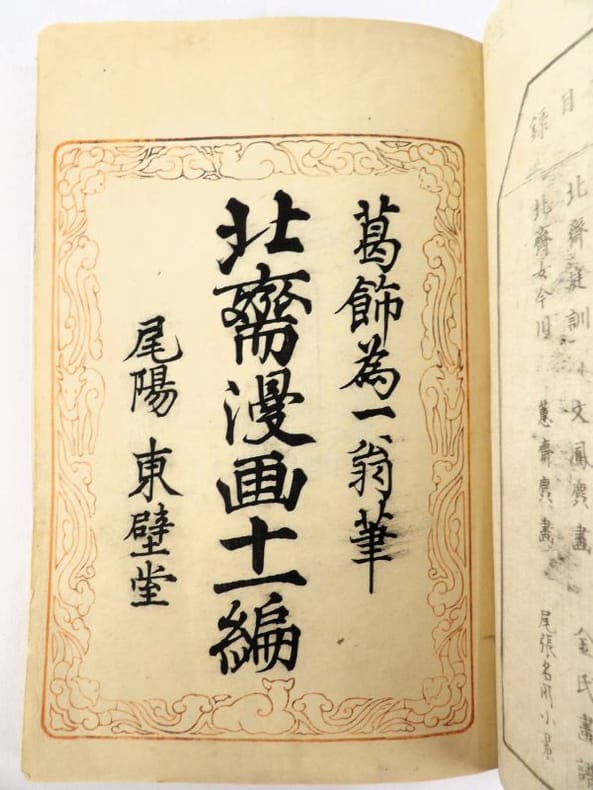 目録
北齋庭訓 文鳳麁畫 金氏畫譜
北齋女今川 蕙齋麁畫 尾張名所小
葛飾為一翁筆
北齋漫画十一編
尾陽 東壁堂